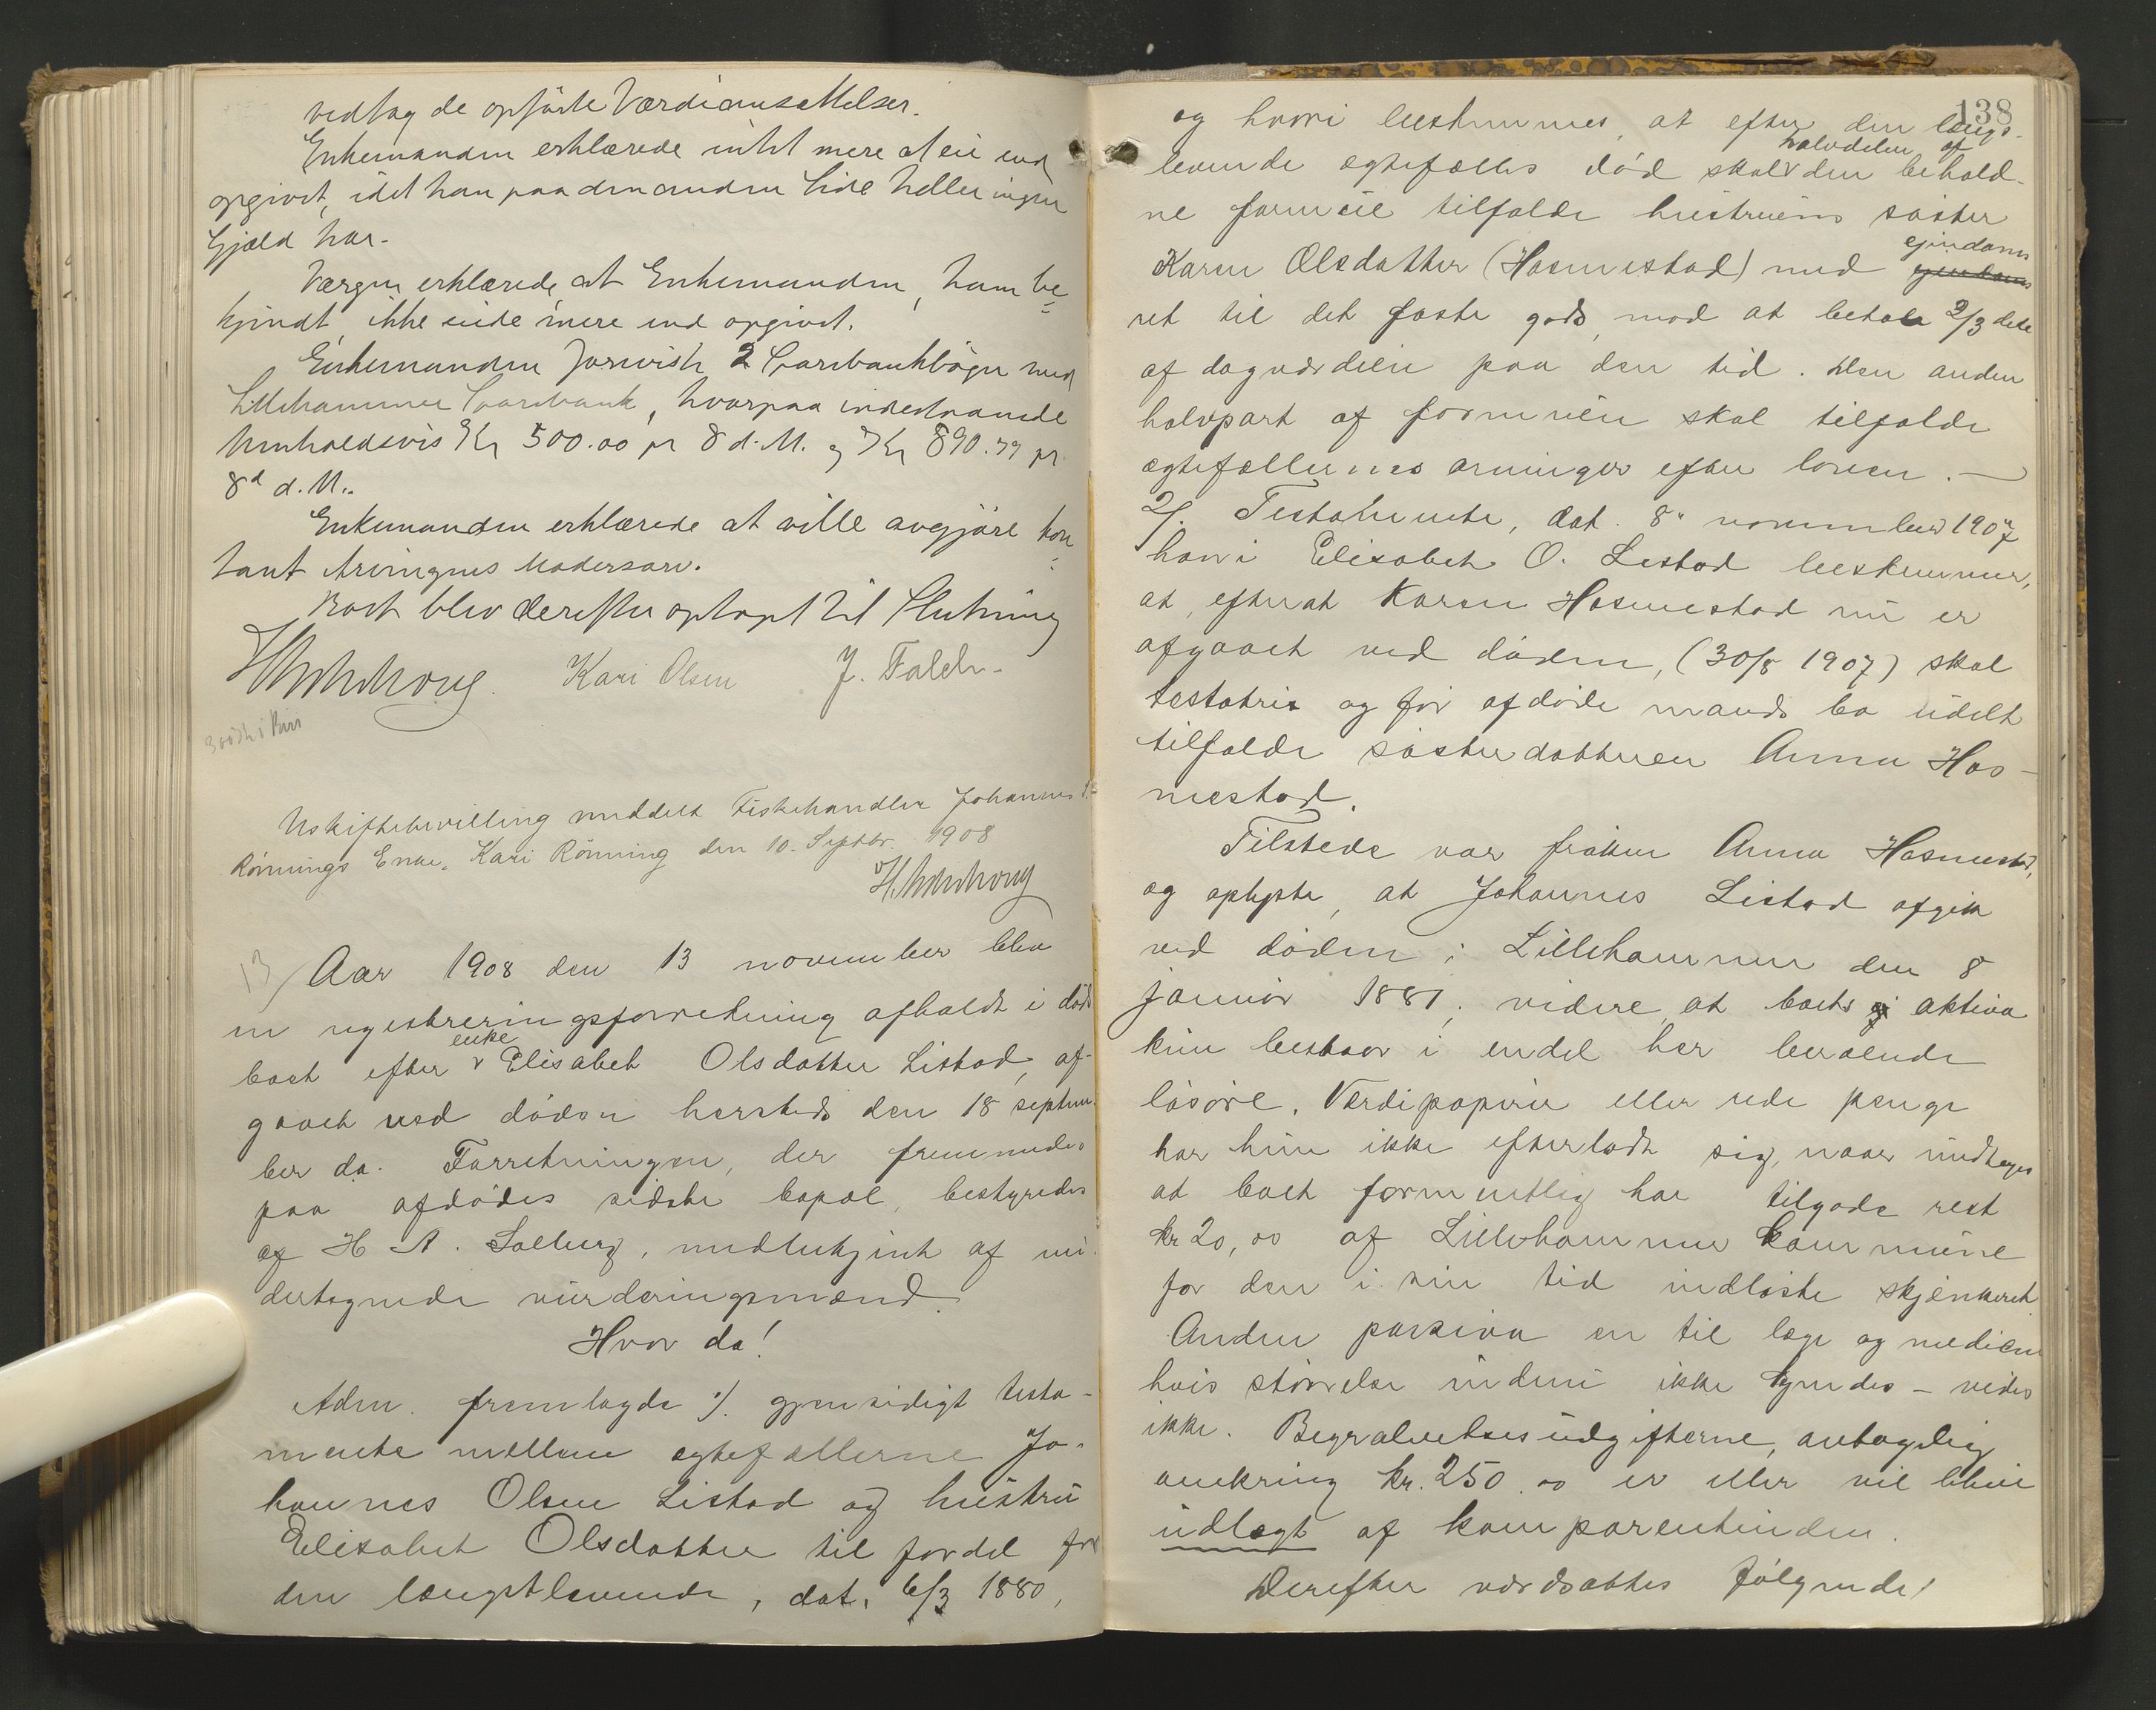 vedtog de opførte Værdiansættelser.
Enkemanden erklærede intet mere at eie end
opgivet, idet han paa den anden Side heller ingen
Gjæld har.
Værgen erklærede, at Enkemanden, ham be=
kjendt, ikke eiede mere end opgivet.
Enkemanden foreviste 2 Sparebankbøger med
Lillehammer Sparebank, hvorpaa indestaaende
henholdsvis Kr 500.00 pr 8 d.M. og Kr 890.79 pr
8d d.M.
Enkemanden erklærede at ville avgjøre kon=
tant Arvingenes Mødrearv.
Boet blev derefter optaget til Slutning
Kari Olsen J. Falch.
Uskiftebevilling meddelt Fiskehandler Johannes
Rönnings Enke, Kari Rönning den 10. Septbr. 1908
13/ Aar 1908 den 13 november blev
en registreringsforretning afholdt i døds
boet efter enke Elisabet Olsdatter Listad, af-
gaaet ved døden hersteds den 18 septem-
ber da. Forretningen, der fremmedes
paa afdødes sidste bopæl, bestyredes
af H A. Solberg, medbekjent af un-
dertegnede vurderingsmænd.
Hvor da!
Adm. fremlagde 1/. gjensidigt testa-
mente mellem egtefællerne Jo-
hannes Olsen Listad og hustru
Elisabet Olsdatter til fordel for
den længstlevende, dat. 6/3 1880,
138
og hvori bestemmes, at efter den længst-
levende egtefælles død skal halvdelen af den behold-
ne formue tilfalde hustruens søster
Karen Olsdatter (Hosmestad) med eiendoms
ret til det faste gods, mod at betale 2/3 dele
af dagværdien paa den tid. Den anden
halvpart af formuen skal tilfalde
egtefællernes arvinger efter loven. —
2/. Testamente, dat. 8de november 1907
hvori Elisabeth O. Listad bestemmer,
at, efterat Karen Hosmestad nu er
afgaaet ved døden, (30/8 1907) skal
testatrix og før afdøde mands bo udelt
tilfalde søsterdatteren Anna Hos-
mestad.
Tilstede var frøken Anna Hosmestad,
og oplyste, at Johannes Listad afgik
ved døden i Lillehammer den 8
januar 1881, videre, at boets aktiva
kun bestaar i endel her beroende
løsøre. Værdipapirer eller rede penge
har hun ikke efterladt sig, naar undtages
at boet formentlig har tilgode rest
kr 20,00 af Lillehammer kommune
for den i sin tid indløste skjænkeret
Anden passiva en til læge og medicin
hvis størrelse endnu ikke kjendes – vides
ikke. Begravelsesudgifterne, antagelig
omkring kr. 250.00 er eller vil blive
udlagt af komparentinden.
Derefter værdsattes følgende: